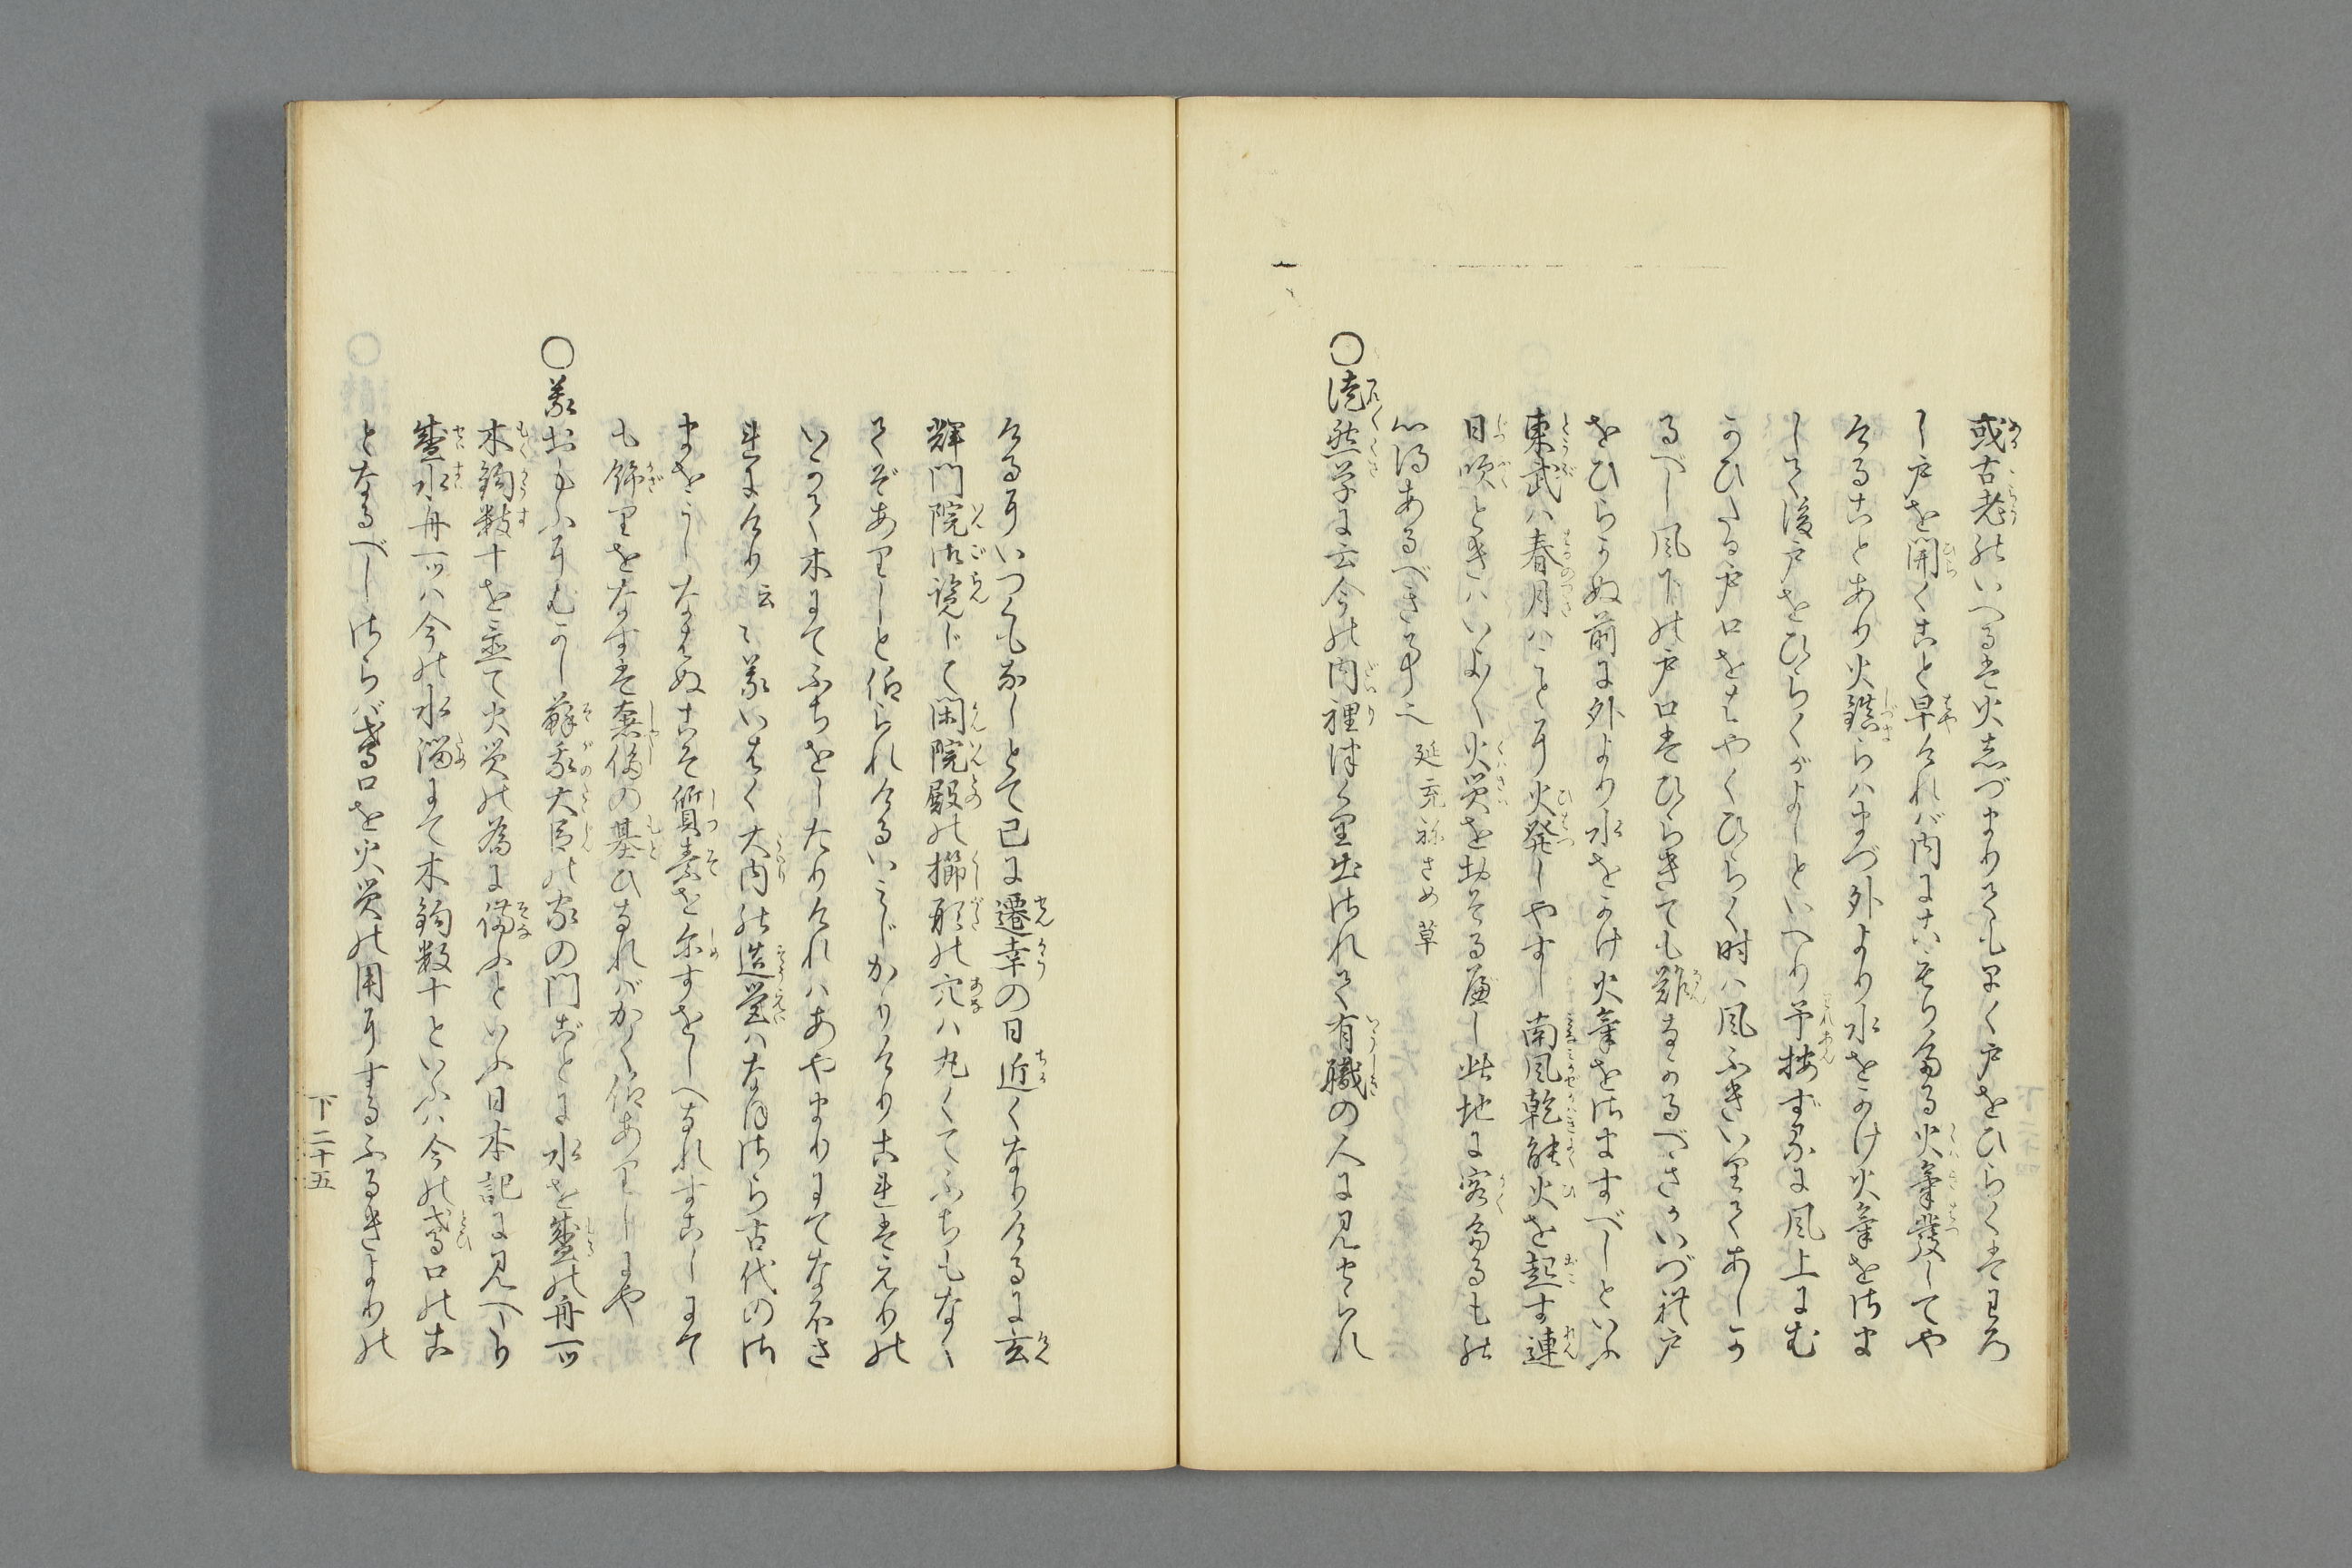 或古老のいへるは火しづまりてもはやく戸をひらくはわろ
し戸を開くこと早ければ内にこもりたる火気発してや
けることあり火鎮らはまづ外より水をかけ火気をさま
して後戸をひらくがよしといへり予按ずるに風上にむ
かひたる戸口をはやくひらく時は風ふきいりてあしか
るべし風下の戸口はひらきても難なかるべきかいづれ戸
をひらかぬ前に外より水をかけ火気をさますべしといふ
東武ハ春月ハことに火発しやすし南風乾能火を起す連
日吹ときハいよ〱火災を恐るべし此地に客たるもの
心得あるべき事也 延宝祢さめ草
〇徒然草に云今の内裡作り出されて有職の人に見せられ
けるにいつくも難なしとて已に遷幸の日近くなりけるに玄
輝門院御覧じて閑院殿の櫛形の穴ハ丸くてふちもなく
てぞありしと仰られけるいみじかりけりこれはえりの
いりて木にてふちをしたりければあやまりにてなおさ
れにけり云々義いはく大内の造営ハなほさら古代のさ
まをうしなはぬこそ質素を示すをしへなれすこしにて
も餝りをなすは奢侈の基ひなればかく仰ありしにや
〇義おもふにむかし蘇我大臣の家の門ごとに水を盛の舟一ツ
木鉤数十を並て火災の為に備ふといふ日本記に見へたり
盛水舟一ツハ今の水溜にて木鉤数十といふハ今の鳶口のこ
となるべしさらバ鳶口を火災の用にするふるきよりの
下二十五